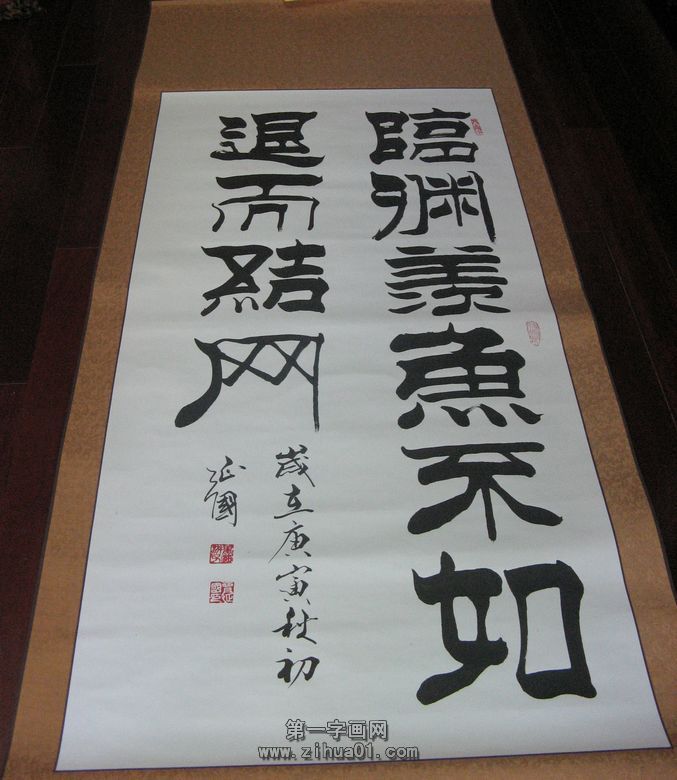 臨渊羨魚不如
退而結网
歲在庚寅秋初
延國
第一字画网
www.zihua01.com